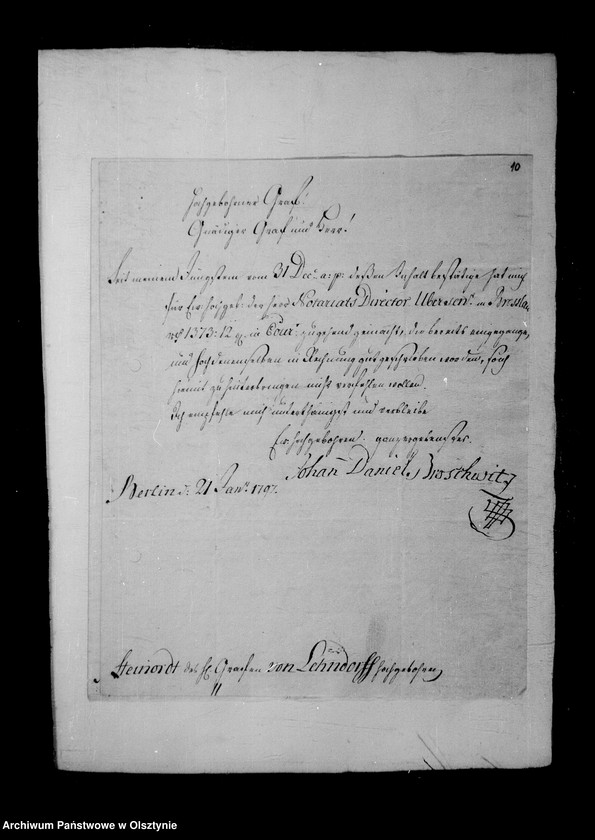 10
Hochgebohrner Graf!
Gnädiger Graf und Herr!
Seit meinem Jüngsten vom 31 Dec. a: p: deßen Inhalt bestätige hat mich
für Ew. Hochgeb. der Herr Notariats Director in Breslau
1373:12 in Cour. zugehend gemacht, die bereits eingegangen,
und Hochdenenselben in Rechnung gutgeschrieben worden, solch
hiemit zu hinterbringen nicht verfehlen wollen.
Ich empfehle mich unterthänigst und verbleibe
Ew. Hochgebohren ganz ergebenster
Johan Daniel Broschwitz
Berlin d: 21 Janr. 1797.
Steinordt des H. Grafen von Lehndorff Hochgebohren
Archiwum Państwowe w Olsztynie